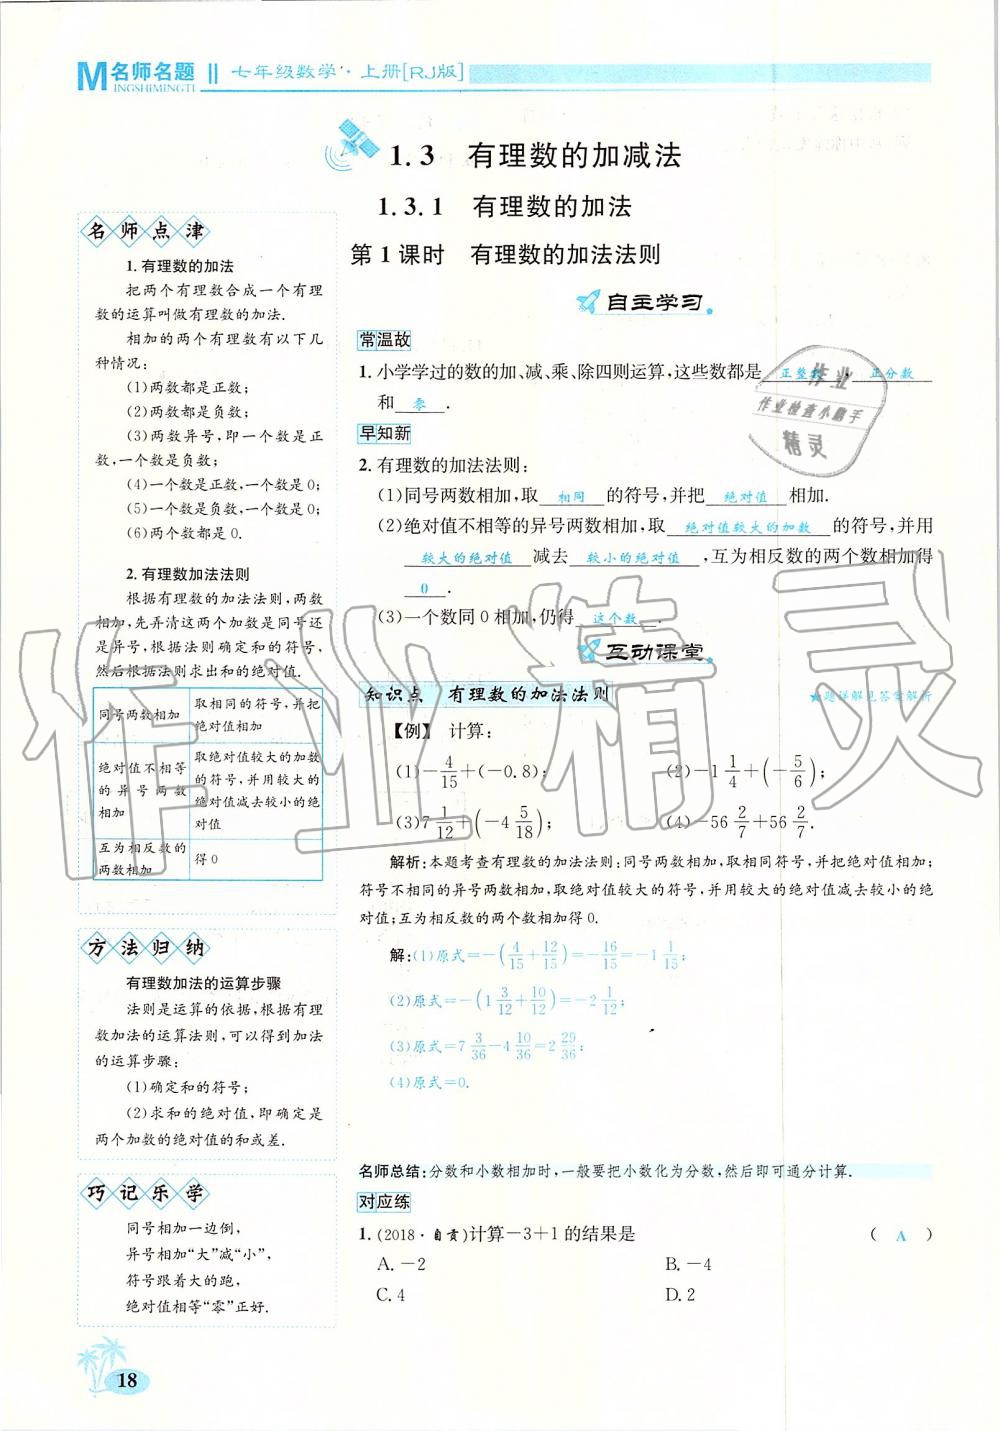 M名师名题
INGSHIMINGTI
七年级数学·上册[RJ版]
1.3 有理数的加减法
1.3.1 有理数的加法
第1课时 有理数的加法法则
名师点津
1.有理数的加法
把两个有理数合成一个有理
数的运算叫做有理数的加法.
相加的两个有理数有以下几
种情况:
(1)两数都是正数;
(2)两数都是负数;
(3)两数异号,即一个数是正
数,一个数是负数;
(4)一个数是正数,一个数是0;
(5)一个数是负数,一个数是0;
(6)两个数都是0.
2.有理数加法法则
根据有理数的加法法则,两数
相加,先弄清这两个加数是同号还
是异号,根据法则确定和的符号,
然后根据法则求出和的绝对值.
同号两数相加 取相同的符号,并把
绝对值相加
绝对值不相等
的异号两数
相加
取绝对值较大的加数
的符号,并用较大的
绝对值减去较小的绝
对值
互为相反数的
两数相加
得0
方法归纳
有理数加法的运算步骤
法则是运算的依据,根据有理
数加法的运算法则,可以得到加法
的运算步骤:
(1)确定和的符号;
(2)求和的绝对值,即确定是
两个加数的绝对值的和或差.
巧记乐学
同号相加一边倒,
异号相加“大”减“小”,
符号跟着大的跑,
绝对值相等“零”正好.
18
自主学习
常温故
1.小学学过的数的加、减、乘、除四则运算,这些数都是 正整数 , 正分数
和 零 .
早知新
2.有理数的加法法则:
(1)同号两数相加,取 相同 的符号,并把 绝对值 相加.
(2)绝对值不相等的异号两数相加,取 绝对值较大的加数 的符号,并用
较大的绝对值 减去 较小的绝对值 ,互为相反数的两个数相加得
0 .
(3)一个数同0相加,仍得 这个数 .
互动课堂
知识点 有理数的加法法则
★题详解见答案解析
【例】 计算:
(1)-4/15+(-0.8); (2)-1 1/4+(-5/6);
(3)7 1/12+(-4 5/18); (4)-56 2/7+56 2/7.
解析:本题考查有理数的加法法则:同号两数相加,取相同符号,并把绝对值相加;
符号不相同的异号两数相加,取绝对值较大的符号,并用较大的绝对值减去较小的绝
对值;互为相反数的两个数相加得0.
解:(1)原式=-(4/15+12/15)=-16/15=-1 1/15;
(2)原式=-(1 3/12+10/12)=-2 1/12;
(3)原式=7 3/36-4 10/36=2 29/36;
(4)原式=0.
名师总结:分数和小数相加时,一般要把小数化为分数,然后即可通分计算.
对应练
1.(2018·自贡)计算-3+1的结果是 ( A )
A.-2 B.-4
C.4 D.2
作业
作业检查小助手
精灵
作业精灵